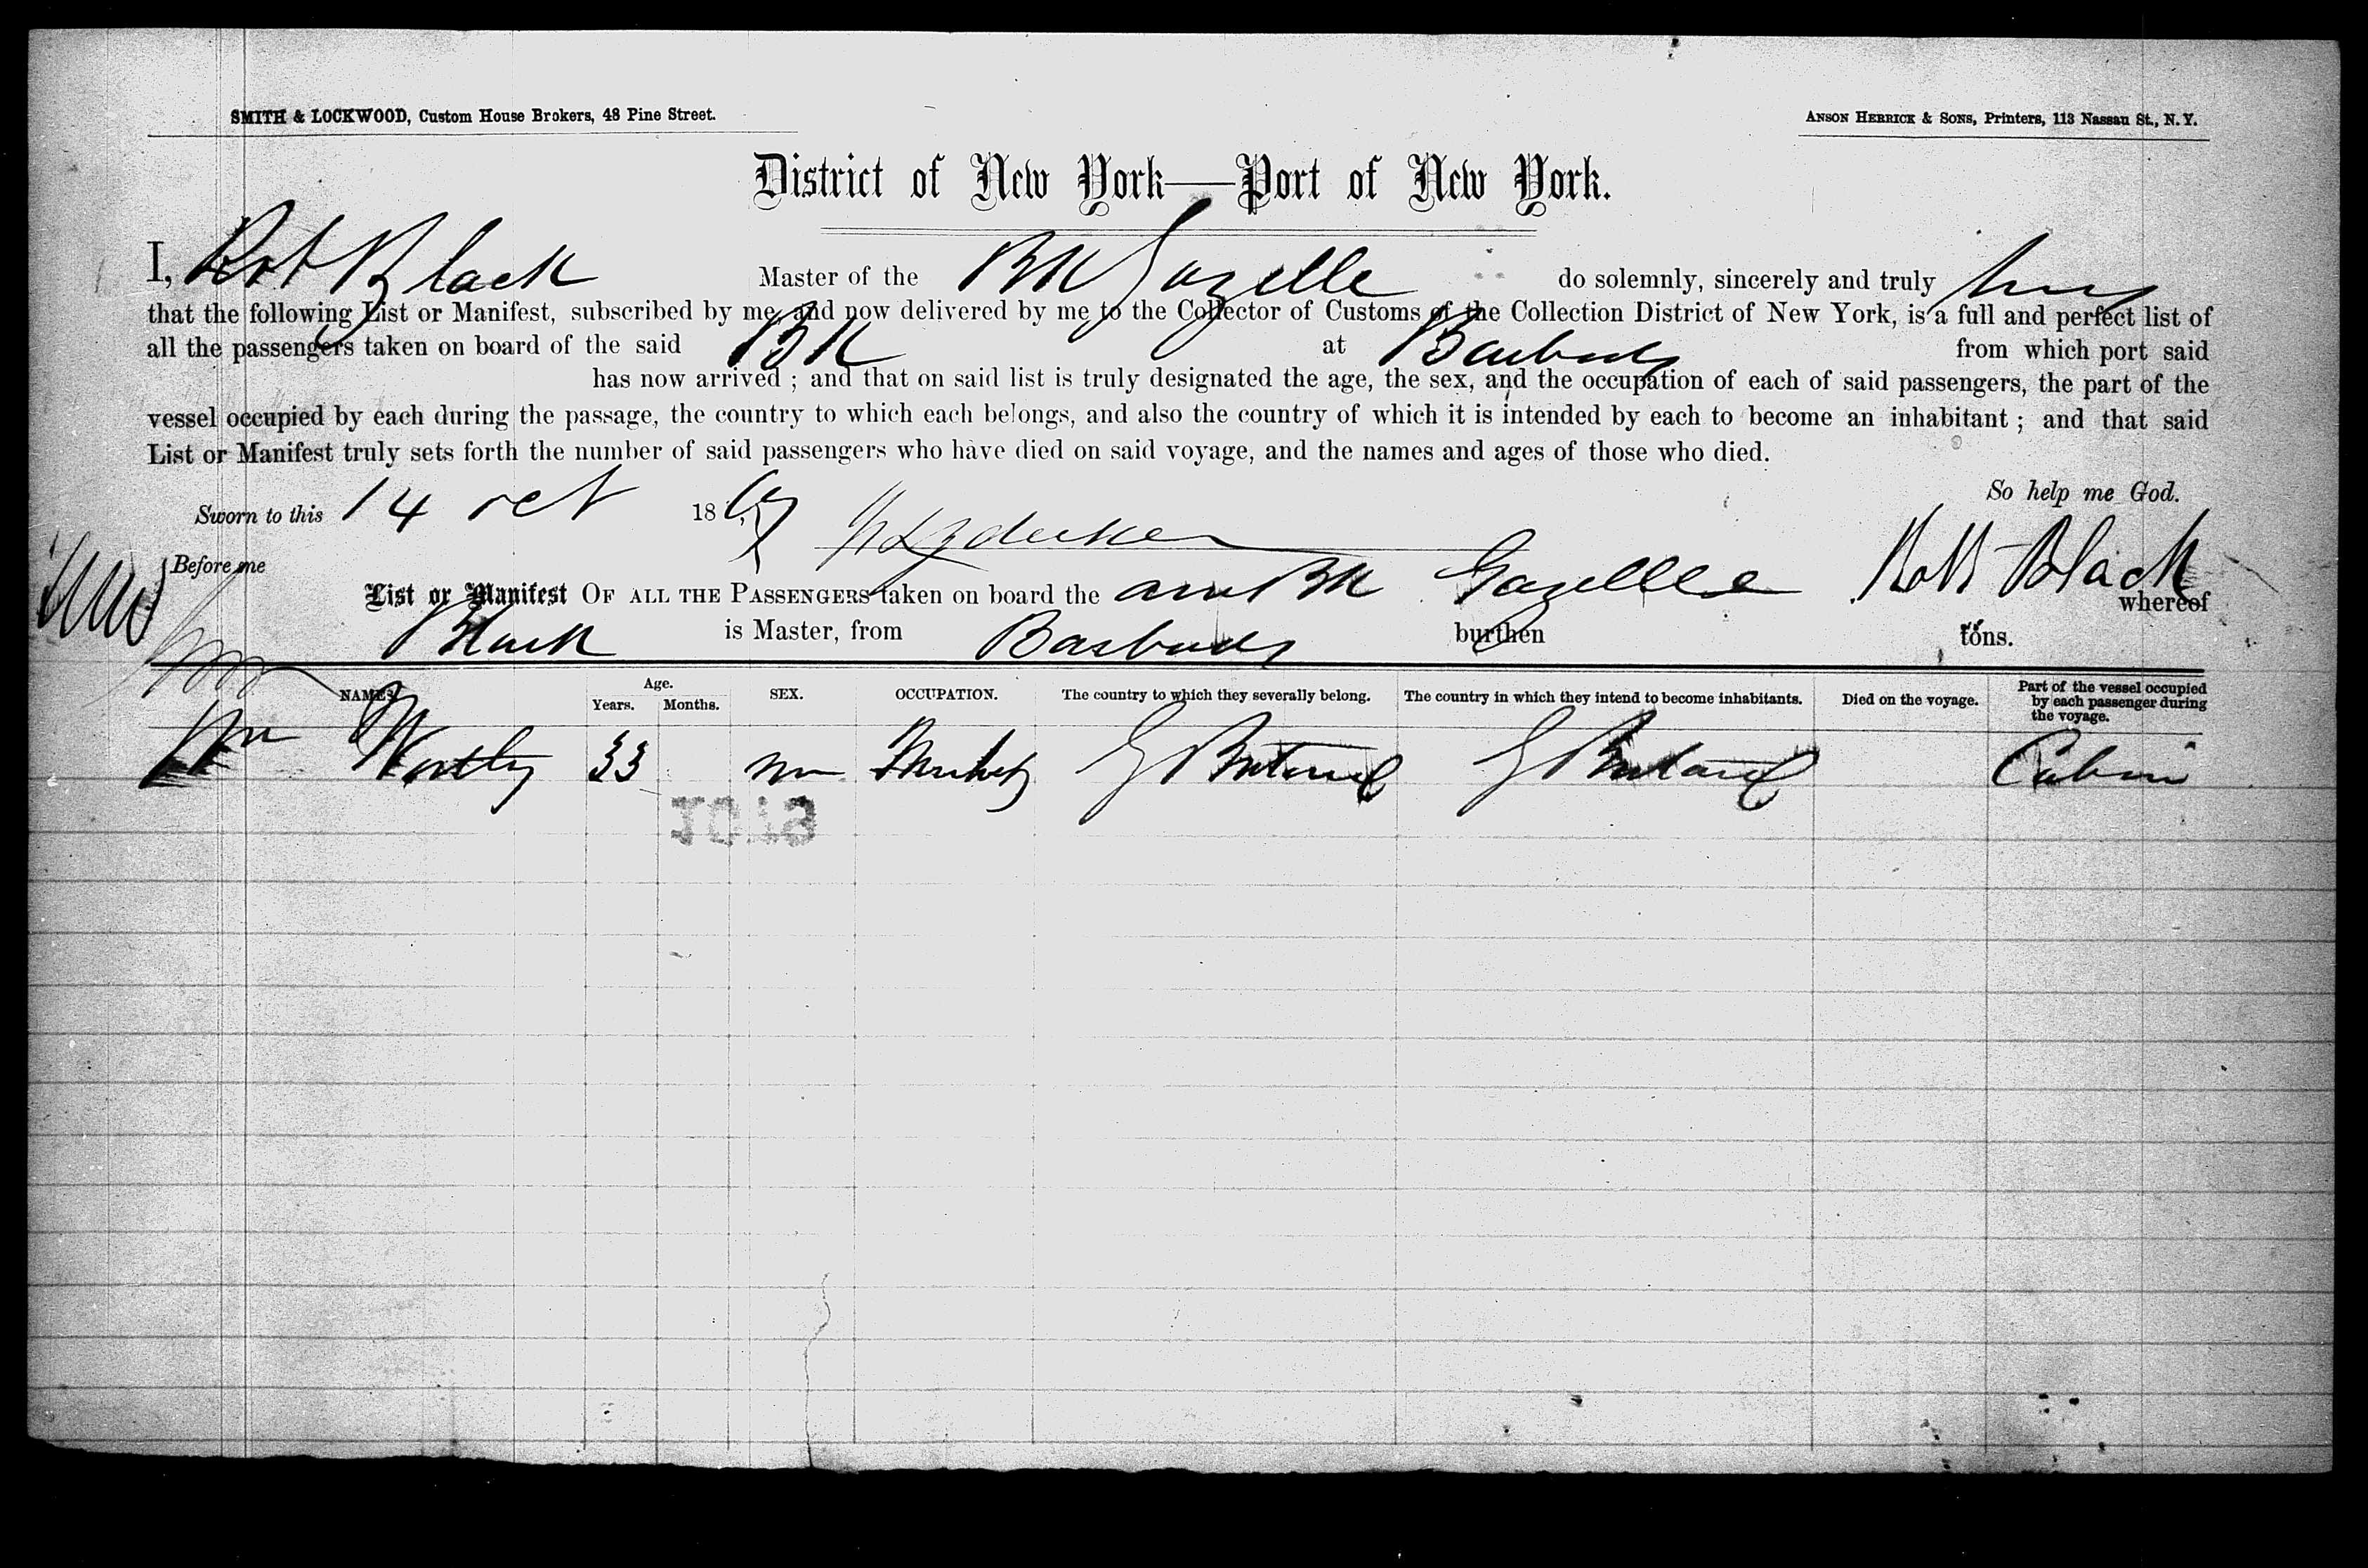 SMITH & LOCKWOOD, Custom House Brokers, 48 Pine Street. ANSON HERRICK & SONS, Printers, 113 Nassau St., N.Y.
District of New York—Port of New York.
I, Robt Black Master of the BK Gazelle do solemnly, sincerely and truly
that the following List or Manifest, subscribed by me, and now delivered by me to the Collector of Customs of the Collection District of New York, is a full and perfect list of
all the passengers taken on board of the said BK at Barbados from which port said
has now arrived; and that on said list is truly designated the age, the sex, and the occupation of each of said passengers, the part of the
vessel occupied by each during the passage, the country to which each belongs, and also the country of which it is intended by each to become an inhabitant; and that said
List or Manifest truly sets forth the number of said passengers who have died on said voyage, and the names and ages of those who died.
So help me God.
Sworn to this 14 Oct 1867
Before me Robt Black
List or Manifest OF ALL THE PASSENGERS taken on board the BK Gazelle whereof
Black is Master, from Barbados burthen tons.
NAMES Age. Years. Months. SEX. OCCUPATION. The country to which they severally belong. The country in which they intend to become inhabitants. Died on the voyage. Part of the vessel occupied by each passenger during the voyage.
Wm 33 m G Britain G Britain Cabin